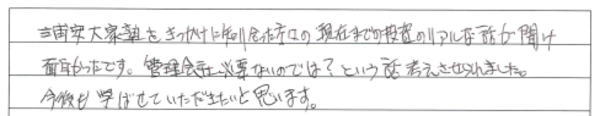 浦安大家塾をきっかけに知り合った方々の現在までの投資のリアルな話が聞け
面白かったです。管理会社必要ないのでは？という話考えさせられました。
今後も学ばせていただきたいと思います。